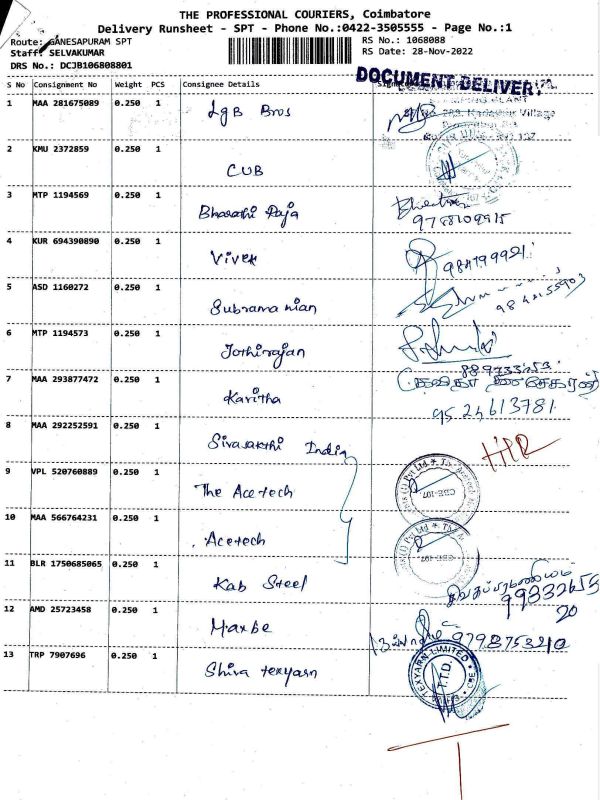 THE PROFESSIONAL COURIERS, Coimbatore
Delivery Runsheet - SPT - Phone No.:0422-3505555 - Page No.:1
Route: GANESAPURAM SPT
Staff: SELVAKUMAR
DRS No.: DCJB106808801
RS No.: 1068088
RS Date: 28-Nov-2022
DOCUMENT DELIVERY
S No Consignment No Weight PCS Consignee Details
1 MAA 281675089 0.250 1 LGB Bros
2 KMU 2372859 0.250 1 CUB
3 MTP 1194569 0.250 1 Bharathi Raja
9788109915
4 KUR 694390890 0.250 1 Vivek
5 ASD 1160272 0.250 1 Subramanian
6 MTP 1194573 0.250 1 Jothirajan
7 MAA 293877472 0.250 1 Kavitha
9524613781
8 MAA 292252591 0.250 1 Sivasakthi India
9 VPL 520760889 0.250 1 The Acetech
CBE-107
10 MAA 566764231 0.250 1 Acetech
11 BLR 1750685065 0.250 1 Kab Steel
12 AMD 25723458 0.250 1 Maxbe
9798753210
13 TRP 7907696 0.250 1 Shiva texyarn
TEXYARN LIMITED
T.T.D.